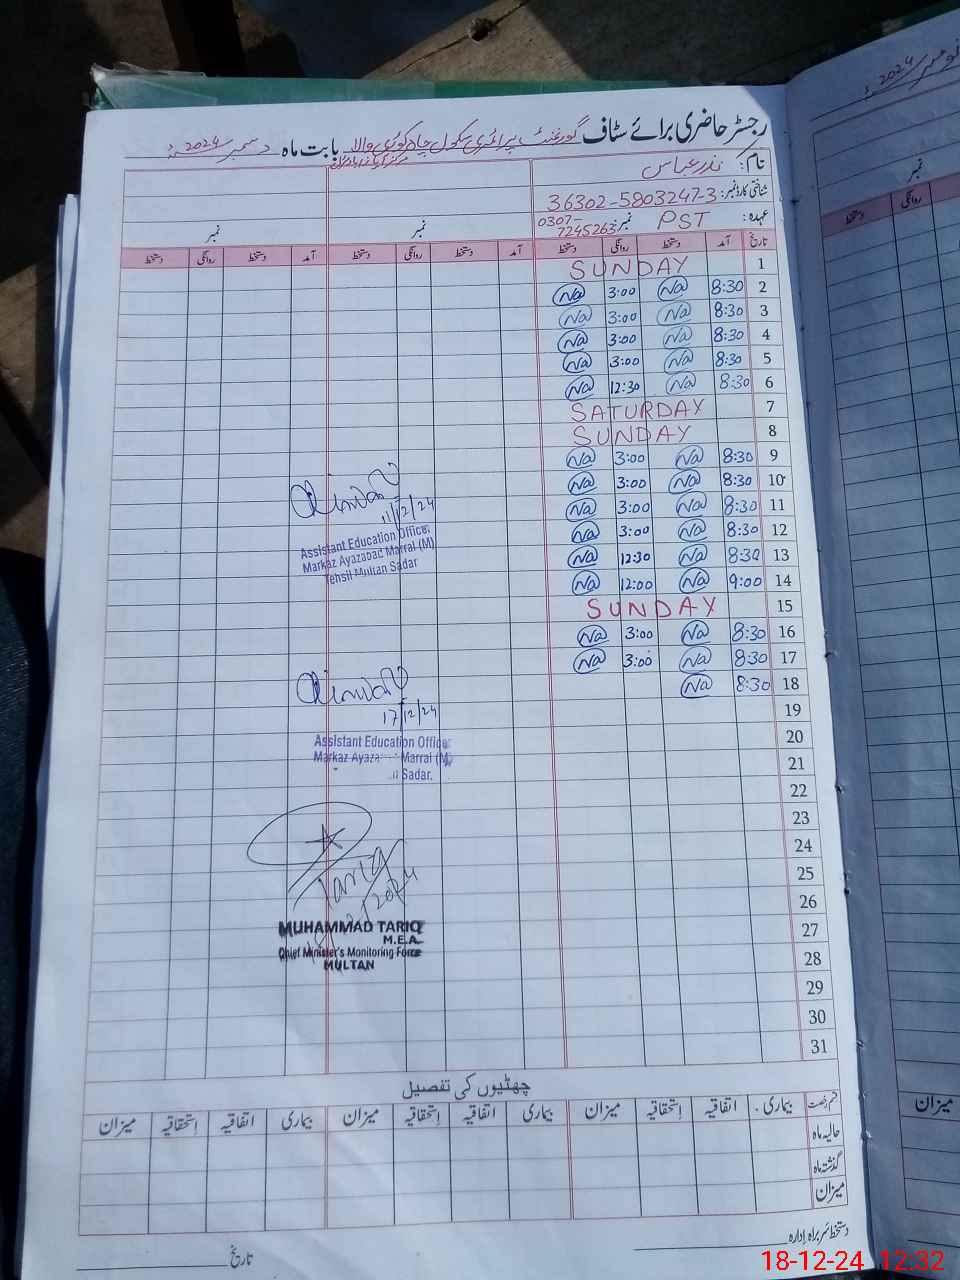 رجسٹر حاضری برائے سٹاف گورنمنٹ پرائمری سکول چاہ کوڑی والا بابت ماہ دسمبر 2024ء
نام: نذر عباس
شناختی کارڈ نمبر: 36302-5803247-3
عہدہ: PST نمبر 0307-7245263 نمبر نمبر
تاریخ آمد دستخط روانگی دستخط آمد دستخط روانگی دستخط آمد دستخط روانگی دستخط
1 SUNDAY
2 8:30 Na 3:00 Na
3 8:30 Na 3:00 Na
4 8:30 Na 3:00 Na
5 8:30 Na 3:00 Na
6 8:30 Na 12:30 Na
7 SATURDAY
8 SUNDAY
9 8:30 Na 3:00 Na
10 8:30 Na 3:00 Na
11 8:30 Na 3:00 Na
12 8:30 Na 3:00 Na
13 8:30 Na 12:30 Na
14 9:00 Na 12:00 Na
15 SUNDAY
16 8:30 Na 3:00 Na
17 8:30 Na 3:00 Na
18 8:30 Na
19
20
21
22
23
24
25
26
27
28
29
30
31
11/12/24
Assistant Education Officer
Markaz Ayazabad Marral (M)
Tehsil Multan Sadar
17/12/24
Assistant Education Office
Markaz Ayaza Marral (M)
Sadar.
Tariq
MUHAMMAD TARIQ
M.E.A.
Chief Minister's Monitoring Force
MULTAN
چھٹیوں کی تفصیل
قسم رخصت بیماری اتفاقیہ استحقاقیہ میزان بیماری اتفاقیہ استحقاقیہ میزان بیماری اتفاقیہ استحقاقیہ میزان
حالیہ ماہ
گذشتہ ماہ
میزان
دستخط سربراہ ادارہ
تاریخ
2024
نمبر
روانگی دستخط
میزان
18-12-24 12:32